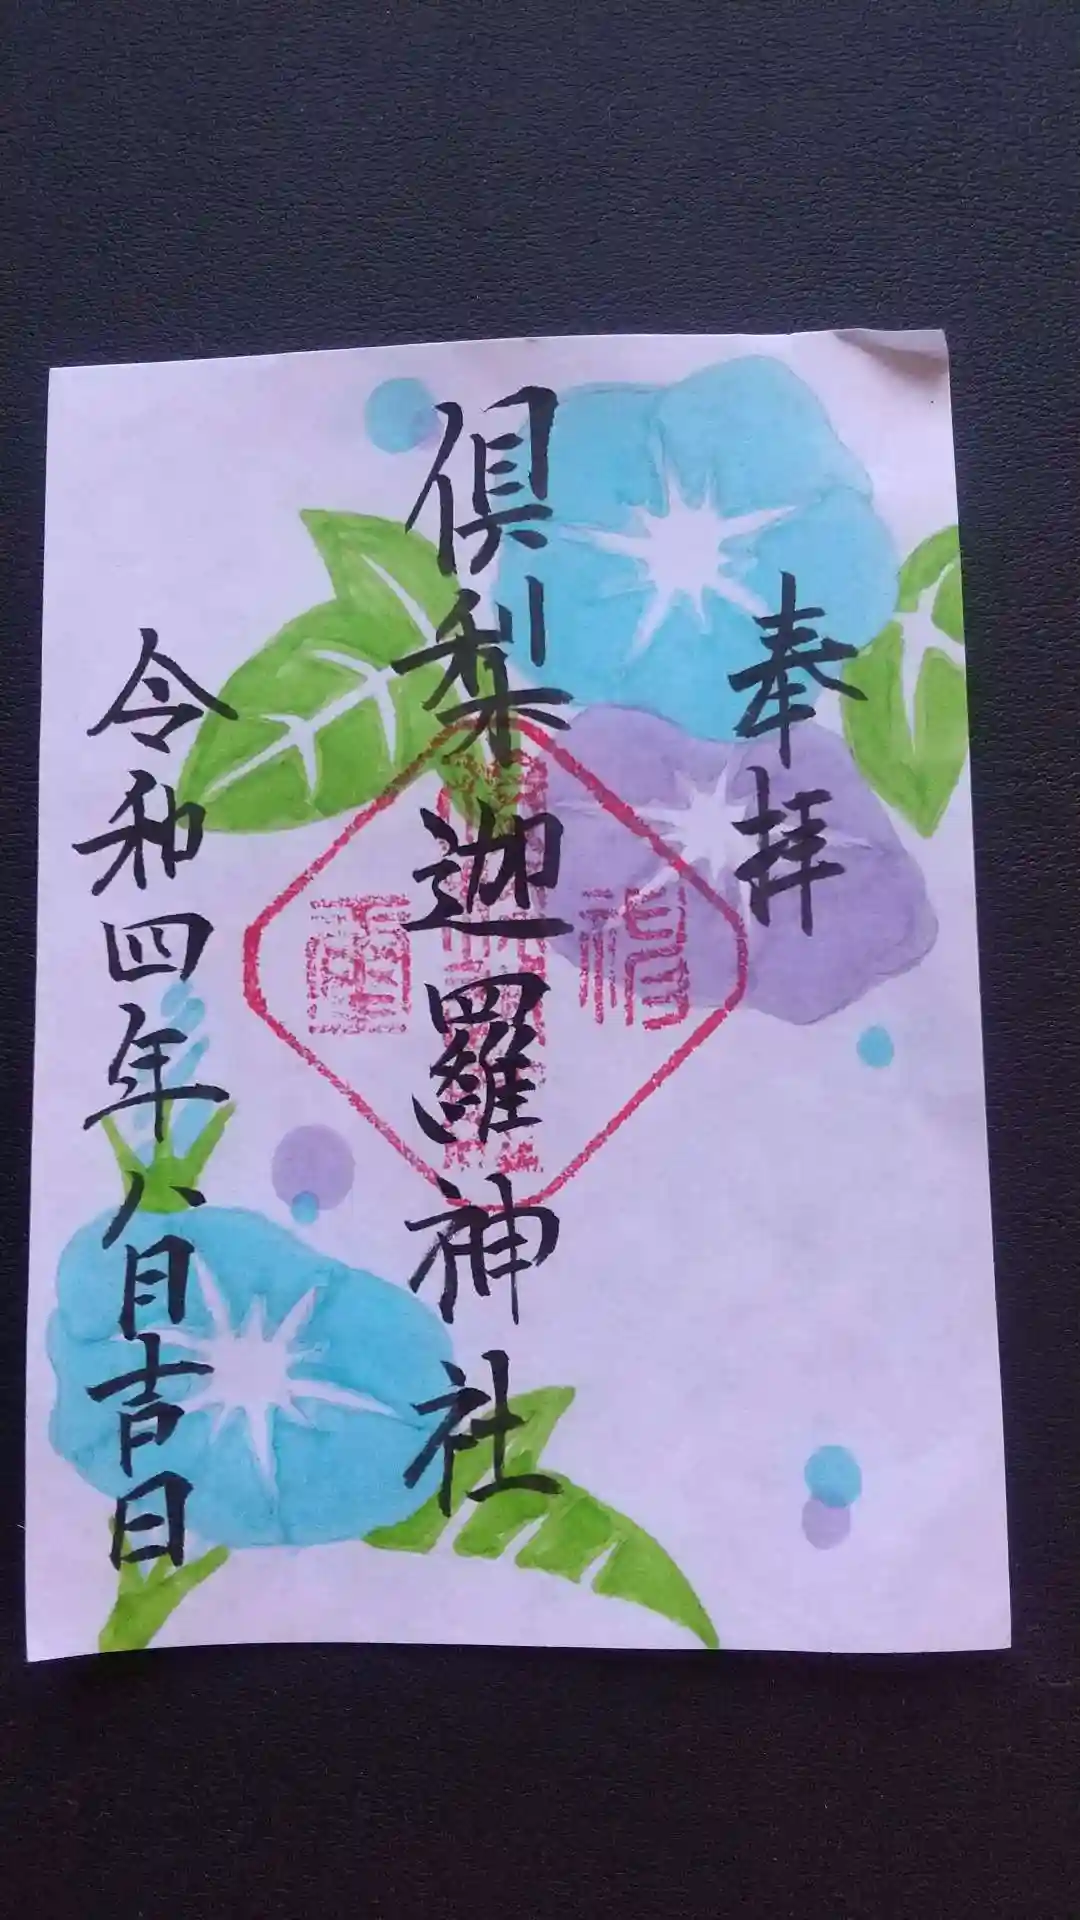 奉拝
倶梨迦羅神社
令和四年八月吉日